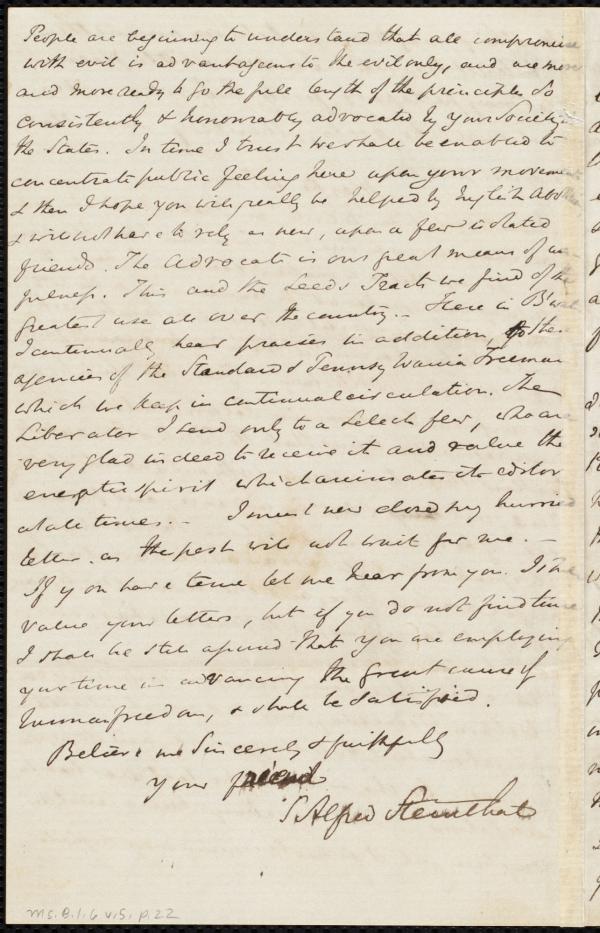 People are beginning to understand that all compromise
with evil is advantageous to the evil only, and are more
and more ready to go the full length of the principles so
consistently & honourably advocated by your Society in
the States. In time I trust we shall be enabled to
concentrate public feeling here upon your movement
& then I hope you will really be helped by English
& will not have to rely as now, upon a few isolated
friends. The Advocate is our great means of use-
fulness. This and the Leeds Tracts we find of the
greatest use all over the country. - Here in
I continually hear praises in addition, to the
agencies of the Standard & Pennsylvania Freeman
which we keep in continual circulation. The
Liberator I send only to a select few, who are
very glad indeed to receive it and value the
energetic spirit which animates its editor
at all times. - I must now close my hurried
letter, as the post will not wait for me. -
If you have time let me hear from you. I
value your letters, but if you do not find time
I shall be still assured that you are employing
your time in advancing the great cause of
human freedom, & shall be satisfied.
Believe me Sincerely & faithfully
your friend
S Alfred Steinthal
Ms. B.1.6 v.5, p.22